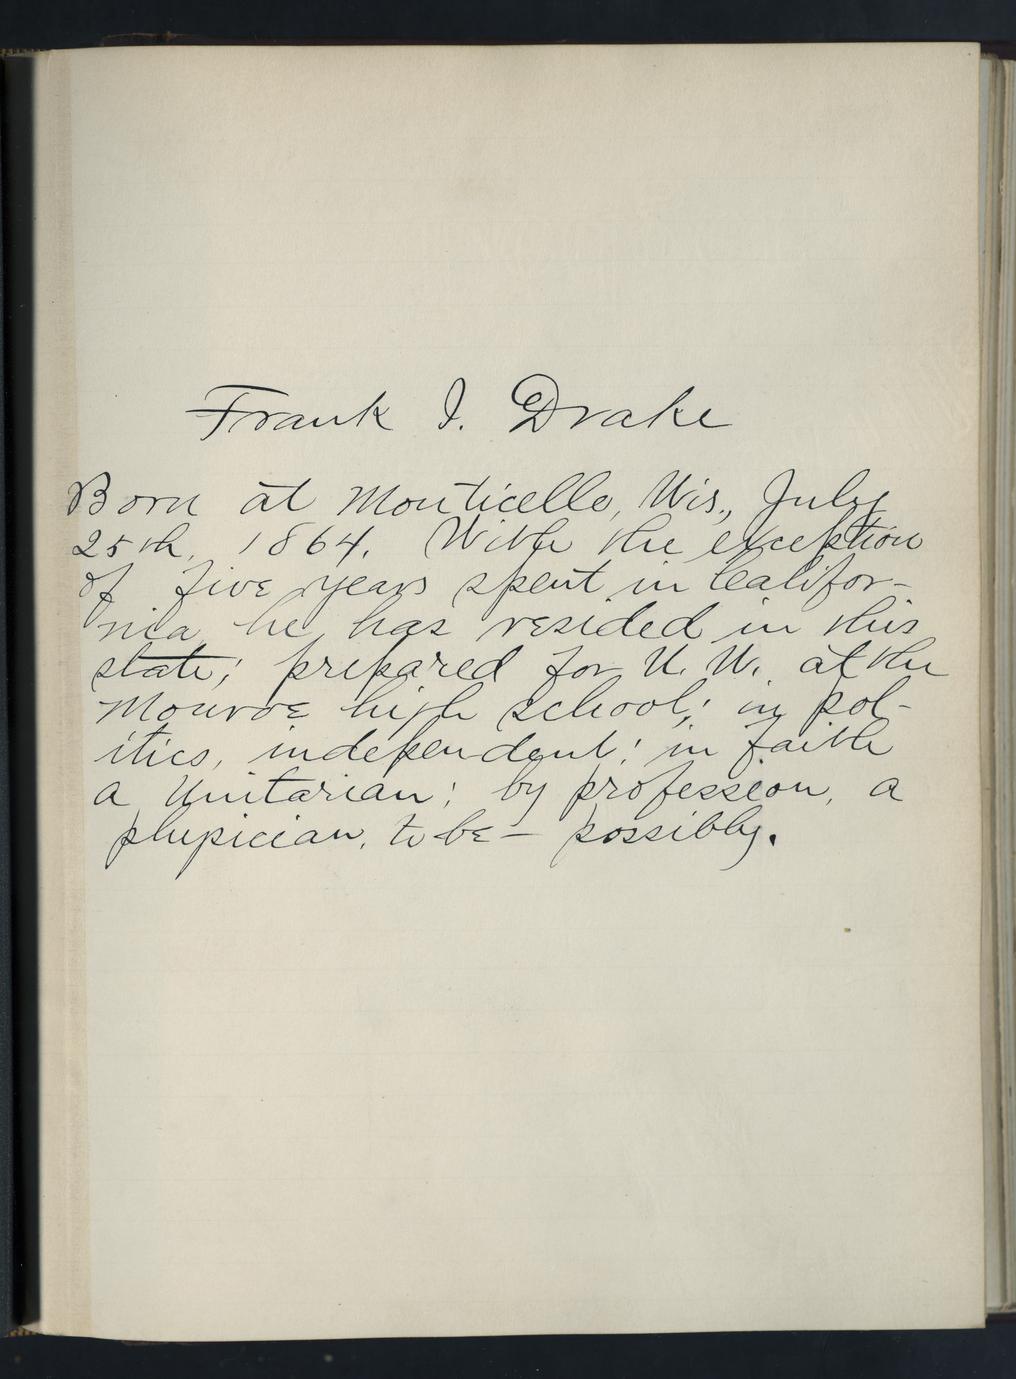 Frank I. Drake
Born at Monticello, Wis., July
25th, 1864. With the exception
of five years spent in Califor-
nia he has resided in this
state; prepared for U. W. at the
Monroe high school; in pol-
itics, independent; in faith
a Unitarian; by profession, a
physician, to be – possibly.